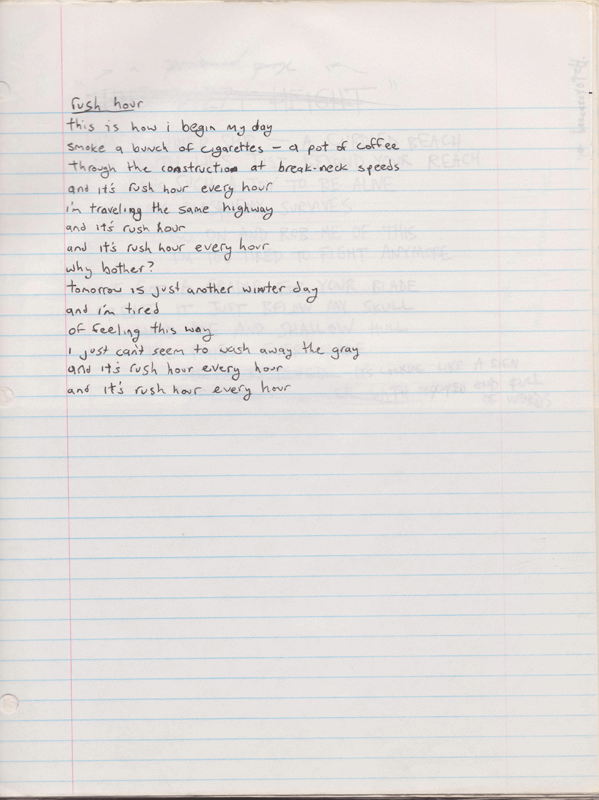 rush hour
this is how i begin my day
smoke a bunch of cigarettes – a pot of coffee
through the construction at break-neck speeds
and it's rush hour every hour
i'm traveling the same highway
and it's rush hour
and it's rush hour every hour
why bother?
tomorrow is just another winter day
and i'm tired
of feeling this way
i just can't seem to wash away the gray
and it's rush hour every hour
and it's rush hour every hour